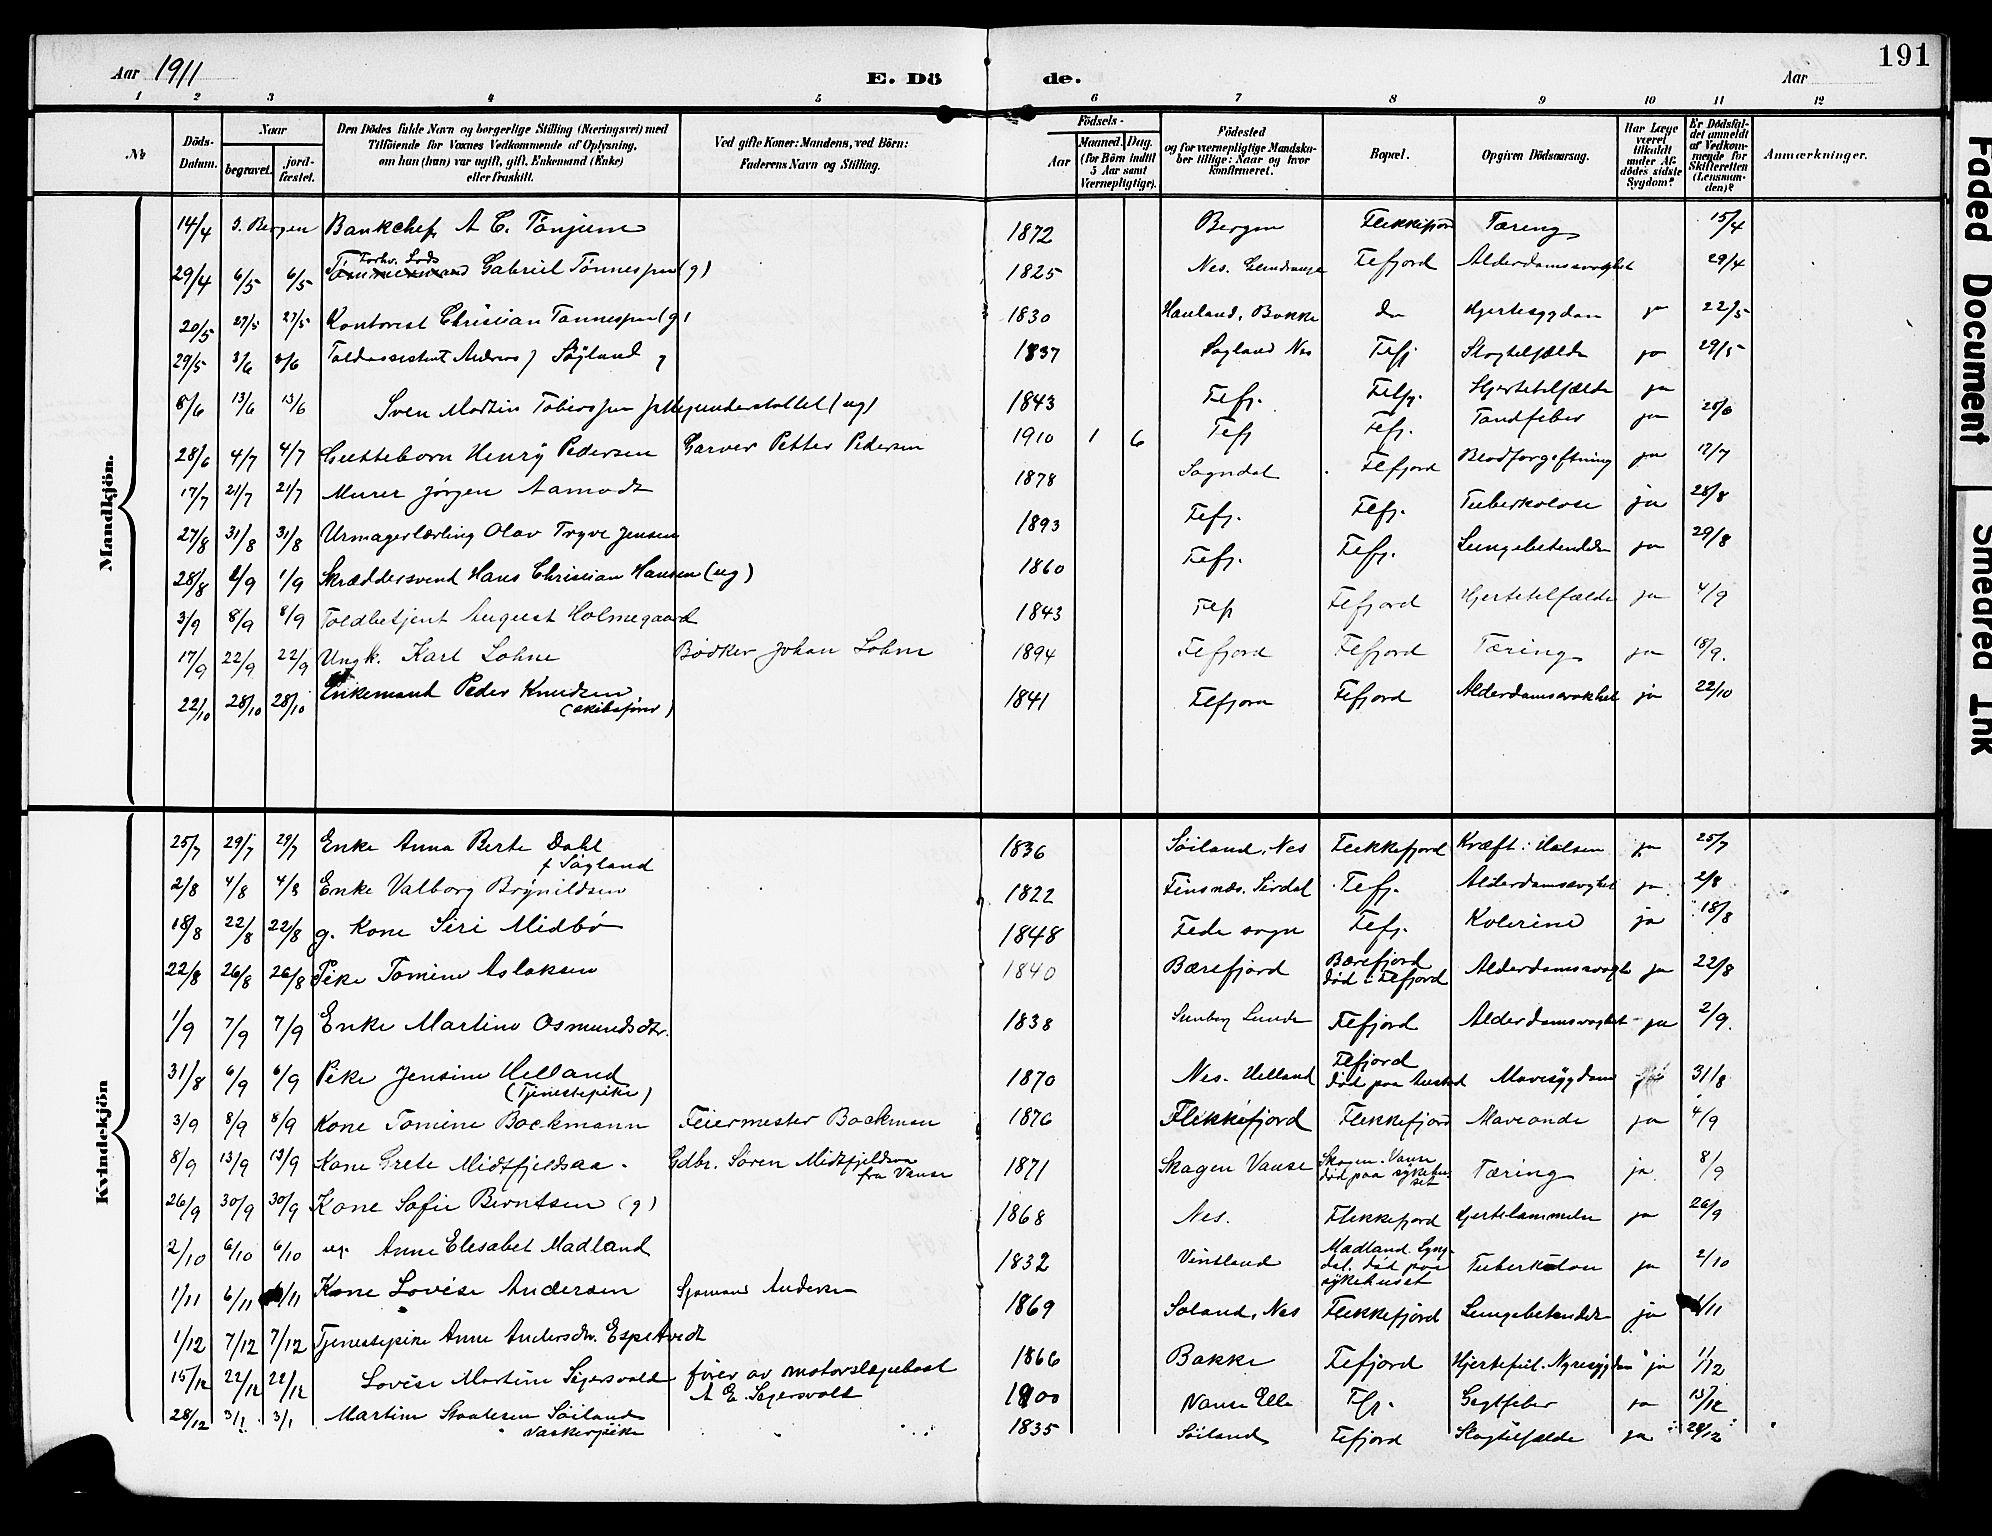 191
Aar 1911
E. Dö de.
Aar
1 2 3 4 5 6 7 8 9 10 11 12
No
Döds-Datum.
Naar
begravet.
jord-fæstet.
Den Dödes fulde Navn og borgerlige Stilling (Næringsvei) med
Tilföiende for Voxnes Vedkommende af Oplysning,
om han (hun) var ugift, gift, Enkemand (Enke)
eller fraskilt.
Ved gifte Koner: Mandens, ved Börn:
Faderens Navn og Stilling.
Födsels-
Aar
Maaned. Dag.
(for Börn indtil
5 Aar samt
Værnepligtige).
Födested
og for værnepligtige Mandska-
ber tillige: Naar og hvor
konfirmeret.
Bopæl.
Opgiven Dödsaarsag.
Har Læge
været
tilkaldt
under Af-
dödes sidste
Sygdom?
Er Dödsfal-
det anmeldt
af Vedkom-
mende for
Skifteretten
(Lensman-
den)?
Anmærkninger.
Mandkjön.
14/4 I. Bergen Bankchef A C. Tönjum 1872 Bergen Flekkefjord Tæring 15/4
29/4 6/5 6/5 Gabriel Tönnessen (g) 1825 Nes. Fefjord Alderdomssvaghet 29/4
20/5 27/5 27/5 Kontorist Christian Tönnessen (g) 1830 Hauland, Bakke do Hjertesygdom ja 22/5
29/5 3/6 3/6 Toldassistent Andreas J Söyland g 1837 Söyland Nes Fefj Slagtilfælde ja 29/5
8/6 13/6 13/6 Sven Martin Tobiassen (ug) 1843 Fefj. Fefj. Hjertetilfælde ja
28/6 4/7 4/7 Guttebarn Henry Pedersen Garver Petter Pedersen 1910 1 6 Fefj Fefj. Tandfeber ja 28/6
17/7 21/7 21/7 Murer Jörgen Aamodt 1878 Sogndal Flefjord Blodforgiftning ja 17/7
27/8 31/8 31/8 Urmagerlærling Olav Trygve Jensen 1893 Fefj. Flefj. Tuberkolose ja 28/8
28/8 1/9 1/9 Skræddersvend Hans Christian Hansen (ug) 1860 Fefj. Fefj. Lungebetendelse ja 29/8
3/9 8/9 8/9 Toldbetjent August Holmegaard 1843 Flefj Flefjord Hjertetilfælde ja 4/9
17/9 22/9 22/9 Ungk. Karl Lohne Bödker Johan Lohne 1894 Flefjord Flefjord Tæring ja 18/9.
22/10 28/10 28/10 Enkemand Peder Knudsen
1841 Flefjord Flefjord Alderdomssvakhet ja 22/10
Kvindekjön
25/7 29/7 29/7 Enke Anna Berte Dahl
f Söyland
1836 Söiland, Nes Flekkefjord Kræft i Halsen ja 25/7
2/8 4/8 4/8 Enke Valborg Brynildsen 1822 Finsnæs. Sirdal Fefj. Alderdomssvaghet ja 2/8
18/8 22/8 22/8 g. Kone Siri Midbö 1848 Fede sogn Fefj. Kolerine ja 18/8
22/8 26/8 26/8 Pike Tomine Aslaksen 1840 Bærefjord Bærefjord
död i Flefjord Alderdomssvagh ja 22/8
1/9 7/9 7/9 Enke Martine Osmundsdtr. 1838 Lunde Flefjord Alderdomssvaghet ja 2/9.
31/8 6/9 6/9 Pike Jensine Helland
(Tjenestepike)
1870 Nes. Helland Flefjord
död paa Austad Mavesygdom 31/8
3/9 8/9 8/9 Kone Tomine Bockmann Feiermester Bockman 1876 Flekkefjord Flekkefjord Maveonde ja 4/9
8/9 13/9 13/9 Kone Grete Midtfjeldsaa Gdbr. Sören Midtfjeldsaa
fra Vanse
1871 Skagen Vanse Skagen. Vanse
död paa sykehu-
set Tæring ja 8/9
26/9 30/9 30/9 Kone Sofie Berntsen (g) 1868 Nes. Flekkefjord Hjertelammelse ja 26/9
2/10 6/10 6/10 ug. Anne Elisabet Madland 1832 Vintland Madland. Lyng-
dal. död paa
sykehuset Tuberkulose ja 2/10
1/11 6/11 6/11 Kone Lovise Andersen Sjömand Andersen 1869 Söland, Nes Flekkefjord Lungebetendelse ja 1/11
1/12 7/12 7/12 Tjenestepike Anne Andersdtr. Espetvedt 1866 Bakke Flefjord Hjertefeil. Nyresygdom ja 1/12
15/12 22/12 22/12 Lovise Martine Sigersvold förer av motorslepebaat
A E. Sigersvold
1900 Vanse Elle Flfj. Gigtfeber ja 15/12
28/12 3/1 3/1 Martine Söiland
Vaskerpike
1835 Söiland Flefjord Slagtilfælde ja 28/12
Faded Document
Smeared Ink